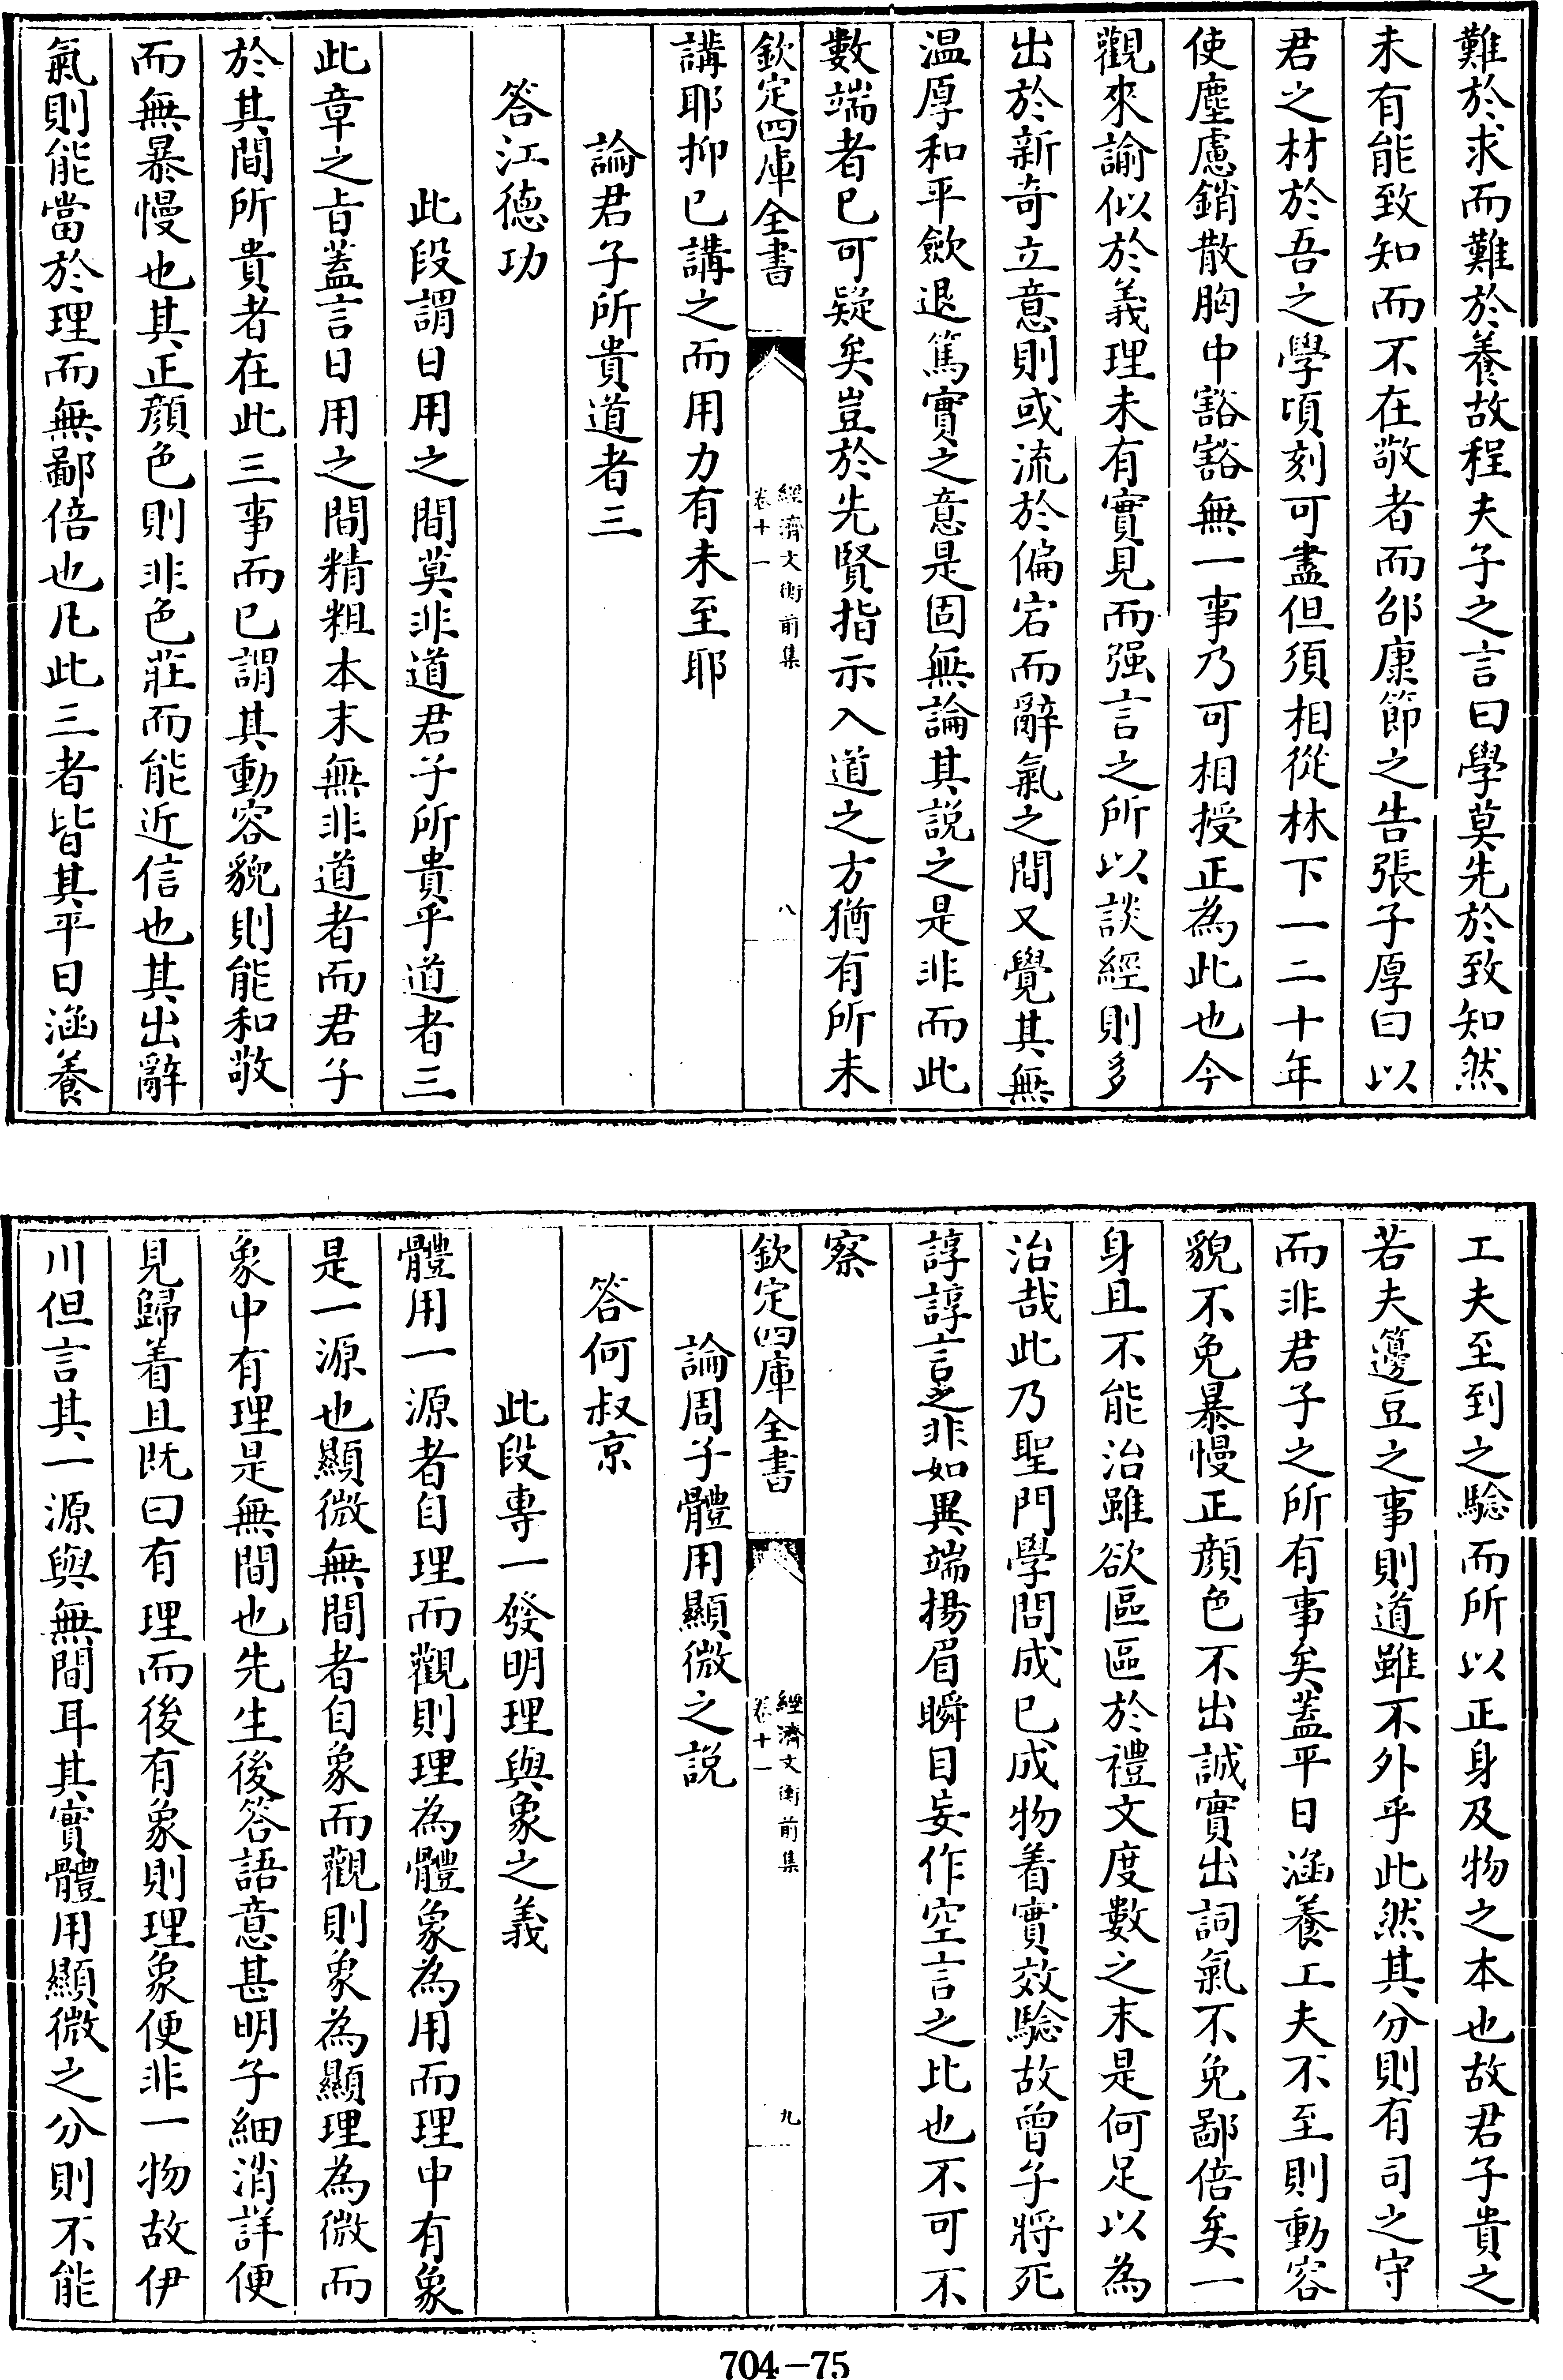 難於求而難於養故程夫子之言曰學莫先於致知然
未有能致知而不在敬者而邵康節之告張子厚曰以
君之材於吾之學頃刻可盡但須相從林下一二十年
使塵慮銷散胸中豁豁無一事乃可相授正為此也今
觀來諭似於義理未有實見而强言之所以談經則多
出於新奇立意則或流於偏宕而辭氣之間又覺其無
温厚和平歛退篤實之意是固無論其説之是非而此
數端者已可疑矣豈於先賢指示入道之方猶有所未
欽定四庫全書
經濟文衡前集
卷十一
八
講耶抑已講之而用力有未至耶
論君子所貴道者三
答江德功
此段謂日用之間莫非道君子所貴乎道者三
此章之㫖蓋言日用之間精粗本末無非道者而君子
於其間所貴者在此三事而已謂其動容貌則能和敬
而無暴慢也其正顔色則非色莊而能近信也其出辭
氣則能當於理而無鄙倍也凡此三者皆其平日涵養
工夫至到之驗而所以正身及物之本也故君子貴之
若夫籩豆之事則道雖不外乎此然其分則有司之守
而非君子之所有事矣蓋平日涵養工夫不至則動容
貌不免暴慢正顔色不出誠實出詞氣不免鄙倍矣一
身且不能治雖欲區區於禮文度數之末是何足以為
治哉此乃聖門學問成已成物着實效驗故曾子將死
諄諄言之非如異端揚眉瞬目妄作空言之比也不可不
察
欽定四庫全書
經濟文衡前集
卷十一
九
論周子體用顯微之説
答何叔京
此段專一發明理與象之義
體用一源者自理而觀則理為體象為用而理中有象
是一源也顯微無間者自象而觀則象為顯理為微而
象中有理是無間也先生後答語意甚明子細消詳便
見歸着且既曰有理而後有象則理象便非一物故伊
川但言其一源與無間耳其實體用顯微之分則不能
704-75